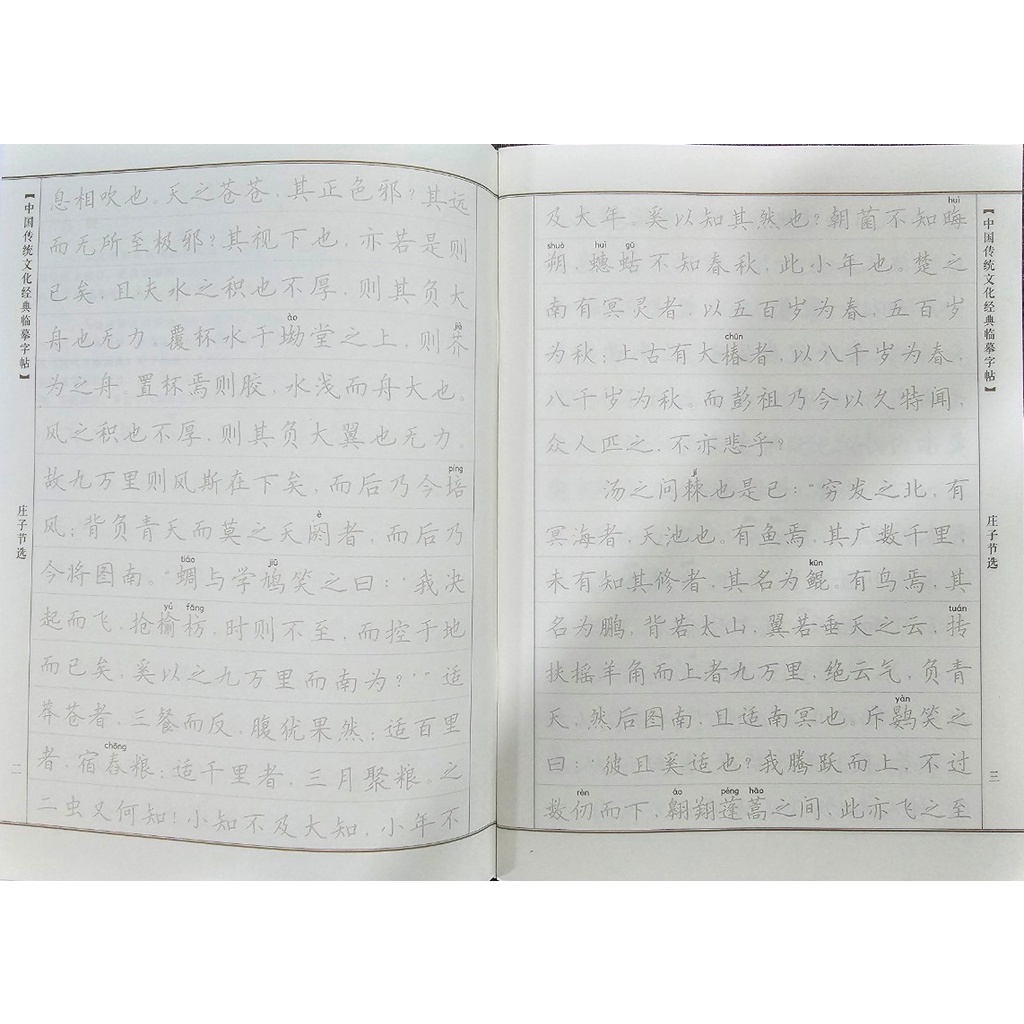 【中国传统文化经典临摹字帖】
庄子节选
二
息相吹也。天之苍苍,其正色邪?其远
而无所至极邪?其视下也,亦若是则
已矣,且夫水之积也不厚,则其负大
ào jiè
舟也无力,覆杯水于坳堂之上,则芥
为之舟。置杯焉则胶,水浅而舟大也。
风之积也不厚,则其负大翼也无力。
píng
故九万里则风斯在下矣,而后乃今培
è
风;背负青天而莫之夭阏者,而后乃
tiáo jiū
今将图南。“蜩与学鸠笑之曰:‘我决
yú fāng
起而飞,抢榆枋,时则不至,而控于地
而已矣,奚以之九万里而南为?’”适
莽苍者,三餐而反,腹犹果然;适百里
chōng
者,宿舂粮;适千里者,三月聚粮。之
二虫又何知!小知不及大知,小年不
huì
及大年。奚以知其然也?朝菌不知晦
shuò huì gū
朔,蟪蛄不知春秋,此小年也。楚之
南有冥灵者,以五百岁为春,五百岁
chūn
为秋;上古有大椿者,以八千岁为春,
八千岁为秋。而彭祖乃今以久特闻,
众人匹之,不亦悲乎?
jí
汤之问棘也是已:“穷发之北,有
冥海者,天池也。有鱼焉,其广数千里,
kūn
未有知其修者,其名为鲲。有鸟焉,其
tuán
名为鹏,背若太山,翼若垂天之云,抟
扶摇羊角而上者九万里,绝云气,负青
yàn
天,然后图南,且适南冥也。斥鷃笑之
曰:‘彼且奚适也?我腾跃而上,不过
rèn áo péng hāo
数仞而下,翱翔蓬蒿之间,此亦飞之至
【中国传统文化经典临摹字帖】
庄子节选
三